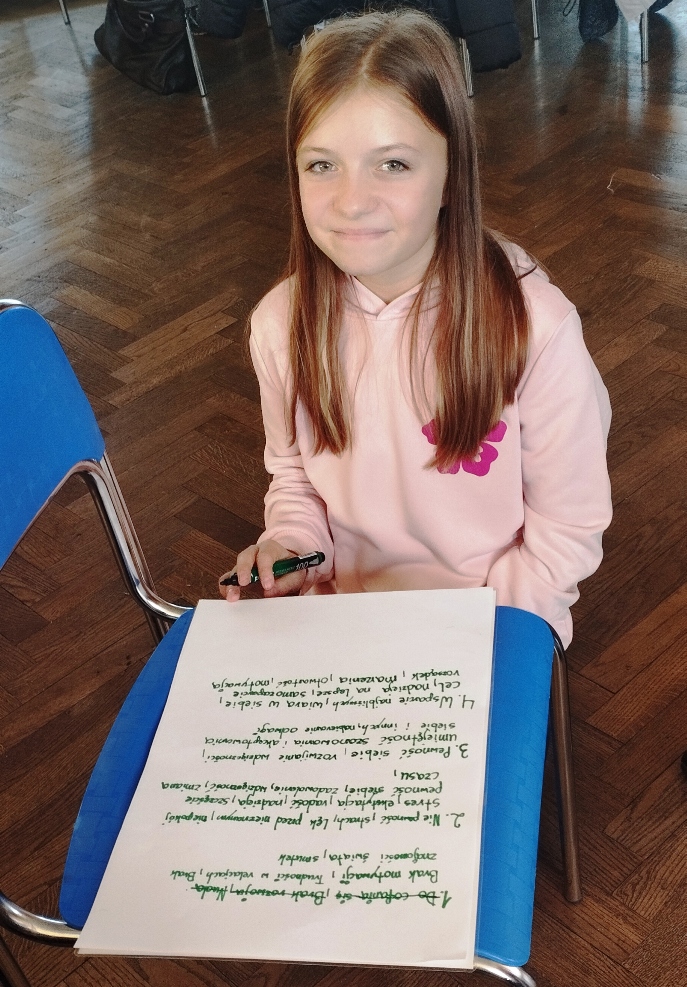 1. Do cofania się, Brak rozwoju, Nuda.
Brak motywacji, Trudności w relacjach, Brak
znajomości świata, smutek
2. Nie pewność, strach, Lęk przed nieznanym, niepokój
Stres, ekscytacja, radość, nadzieja, Szczęście
pewność siebie, zadowolenie, wdzięczność, zmiana
czasu,
3. Pewność siebie, rozwijanie wdzięczności,
umiejętność szanowania i akceptowania
siebie i innych, nabieranie odwagi
4. Wsparcie najbliższych, wiara w siebie,
cel, nadzieja na lepsze, samozaparcie
rozsądek, marzenia, otwartość, motywacja